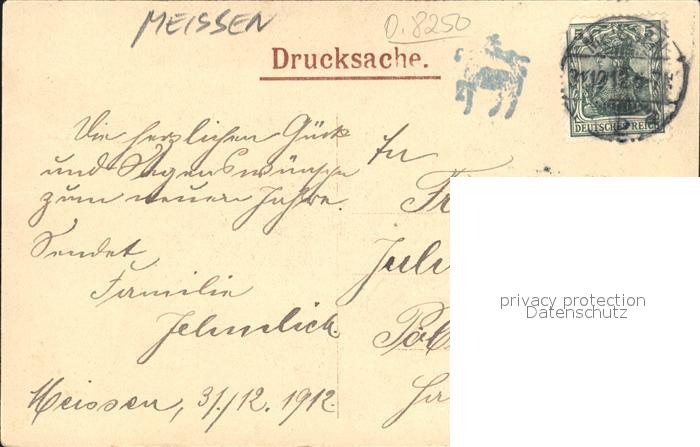 MEISSEN
D. 8250
Drucksache.
5 5
DEUTSCHES REICH
Die herzlichen Glück
und Segenswünsche
zum neuen Jahre.
Sendet
Familie
Jehmlich.
Meissen, 31./12. 1912.
An
Fr
Jul
Pöl
privacy protection
Datenschutz